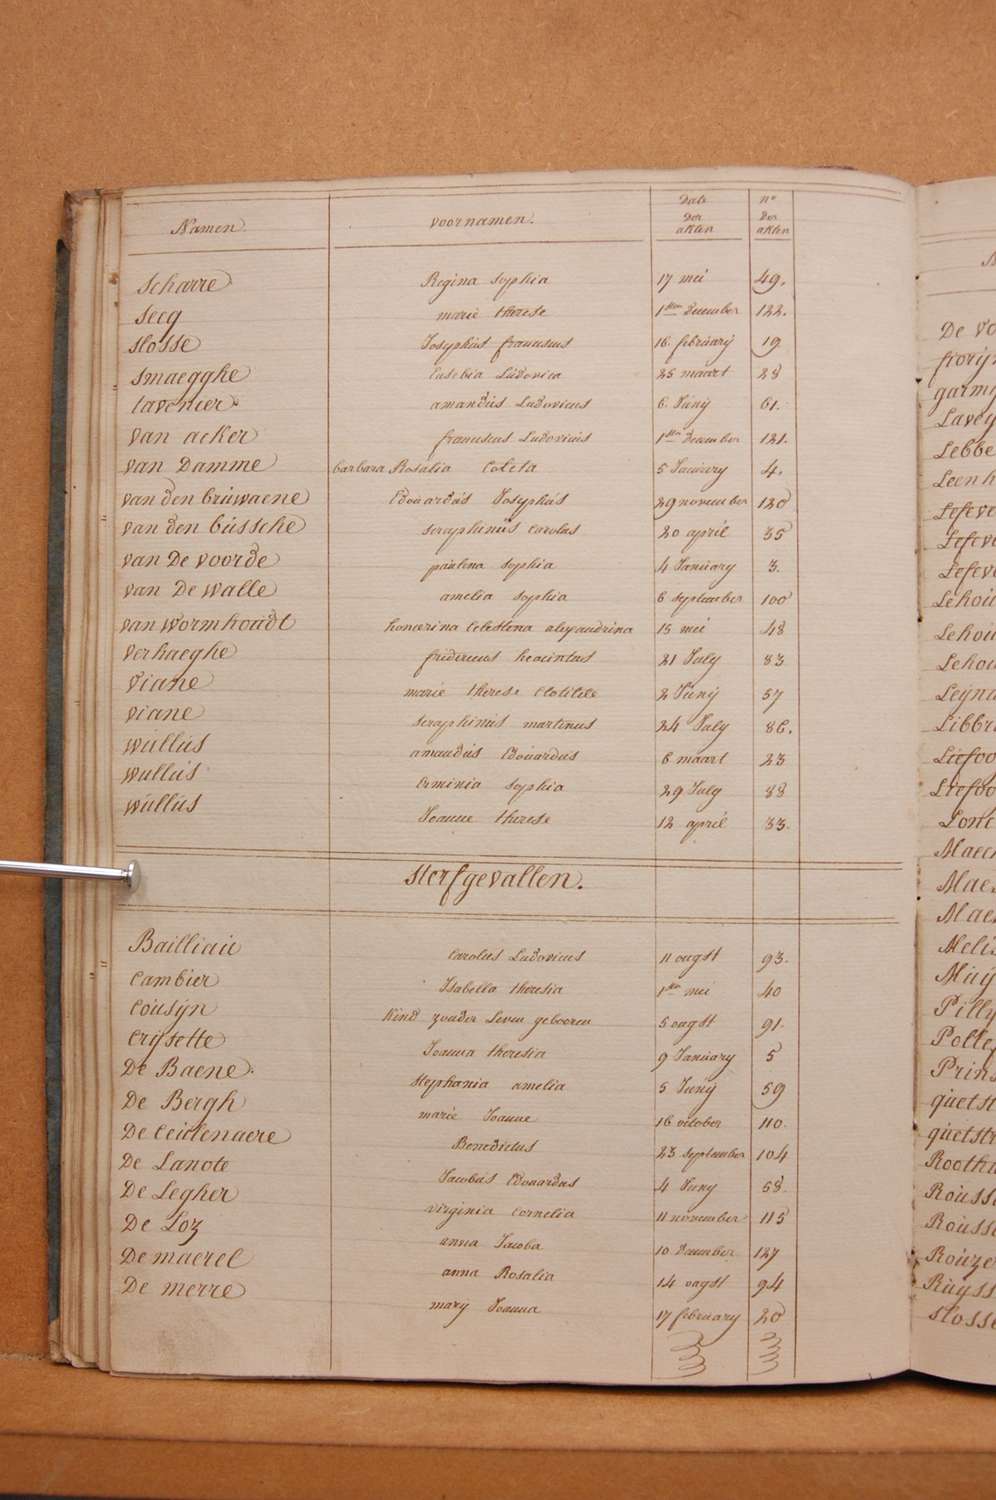 Namen. voornamen. Date Der akten n° Der akten
Scharre Regina Sophia 17 mei 49.
Secq marie therese 1sten December 122.
Slosse Josephus franciscus 16 februarij 19
Smaegghe Eusebia Ludovica 25 maart 28
tavenier amandus Ludovicus 6 Junij 61.
van acker franciscus Ludovicus 1sten December 121.
van Damme barbara Rosalia Coleta 5 January 4.
van den bruwaene Edouardus Josephus 29 november 120
van den bussche seraphinus Carolus 20 april 35
van De voorde paulina sophia 4 January 3.
van De walle amelia sophia 6 september 100
van wormhoudt honorina Celestina alexandrina 15 mei 48
verhaeghe fridericus heacintus 21 July 83
Viane marie therese Clotilde 2 Junij 57
viane seraphinus martinus 24 July 86.
wullus amandus Edouardus 6 maart 23
wullus Erminia sophia 29 July 88
wullus Joanne therese 12 april 33.
Sterfgevallen.
Bailliau Carolus Ludovicus 11 ougst 93.
Cambier Isabella theresia 1sten mei 40
Cousijn Kind zonder Leven geboren 5 ougst 91.
Crijsette Joanna theresia 9 January 5
De Baene. stephania amelia 5 Junij 59
De Bergh marie Joanne 16 october 110.
De Ceulenaere Benedictus 23 september 104
De Lanote Jacobus Edouardus 4 Juny 58.
De Legher virginia Cornelia 11 november 115
De Loz anna Jacoba 10 December 127
De maerel anna Rosalia 14 ougst 94
De merre mary Joanna 17 february 20
De Vo
frorij
garm
Laveg
Lebbe
Leenh
Lefeve
Lefeve
Lefeve
Lehou
Lehou
Lehou
Leyn
Libbr
Liefoo
Liefoo
Lonc
Maec
Mae
Mae
Melis
Muy
Pilly
Polle
Prin
quetst
quetst
Rooth
Rouss
Rouss
Rouze
Ruyss
Slosse